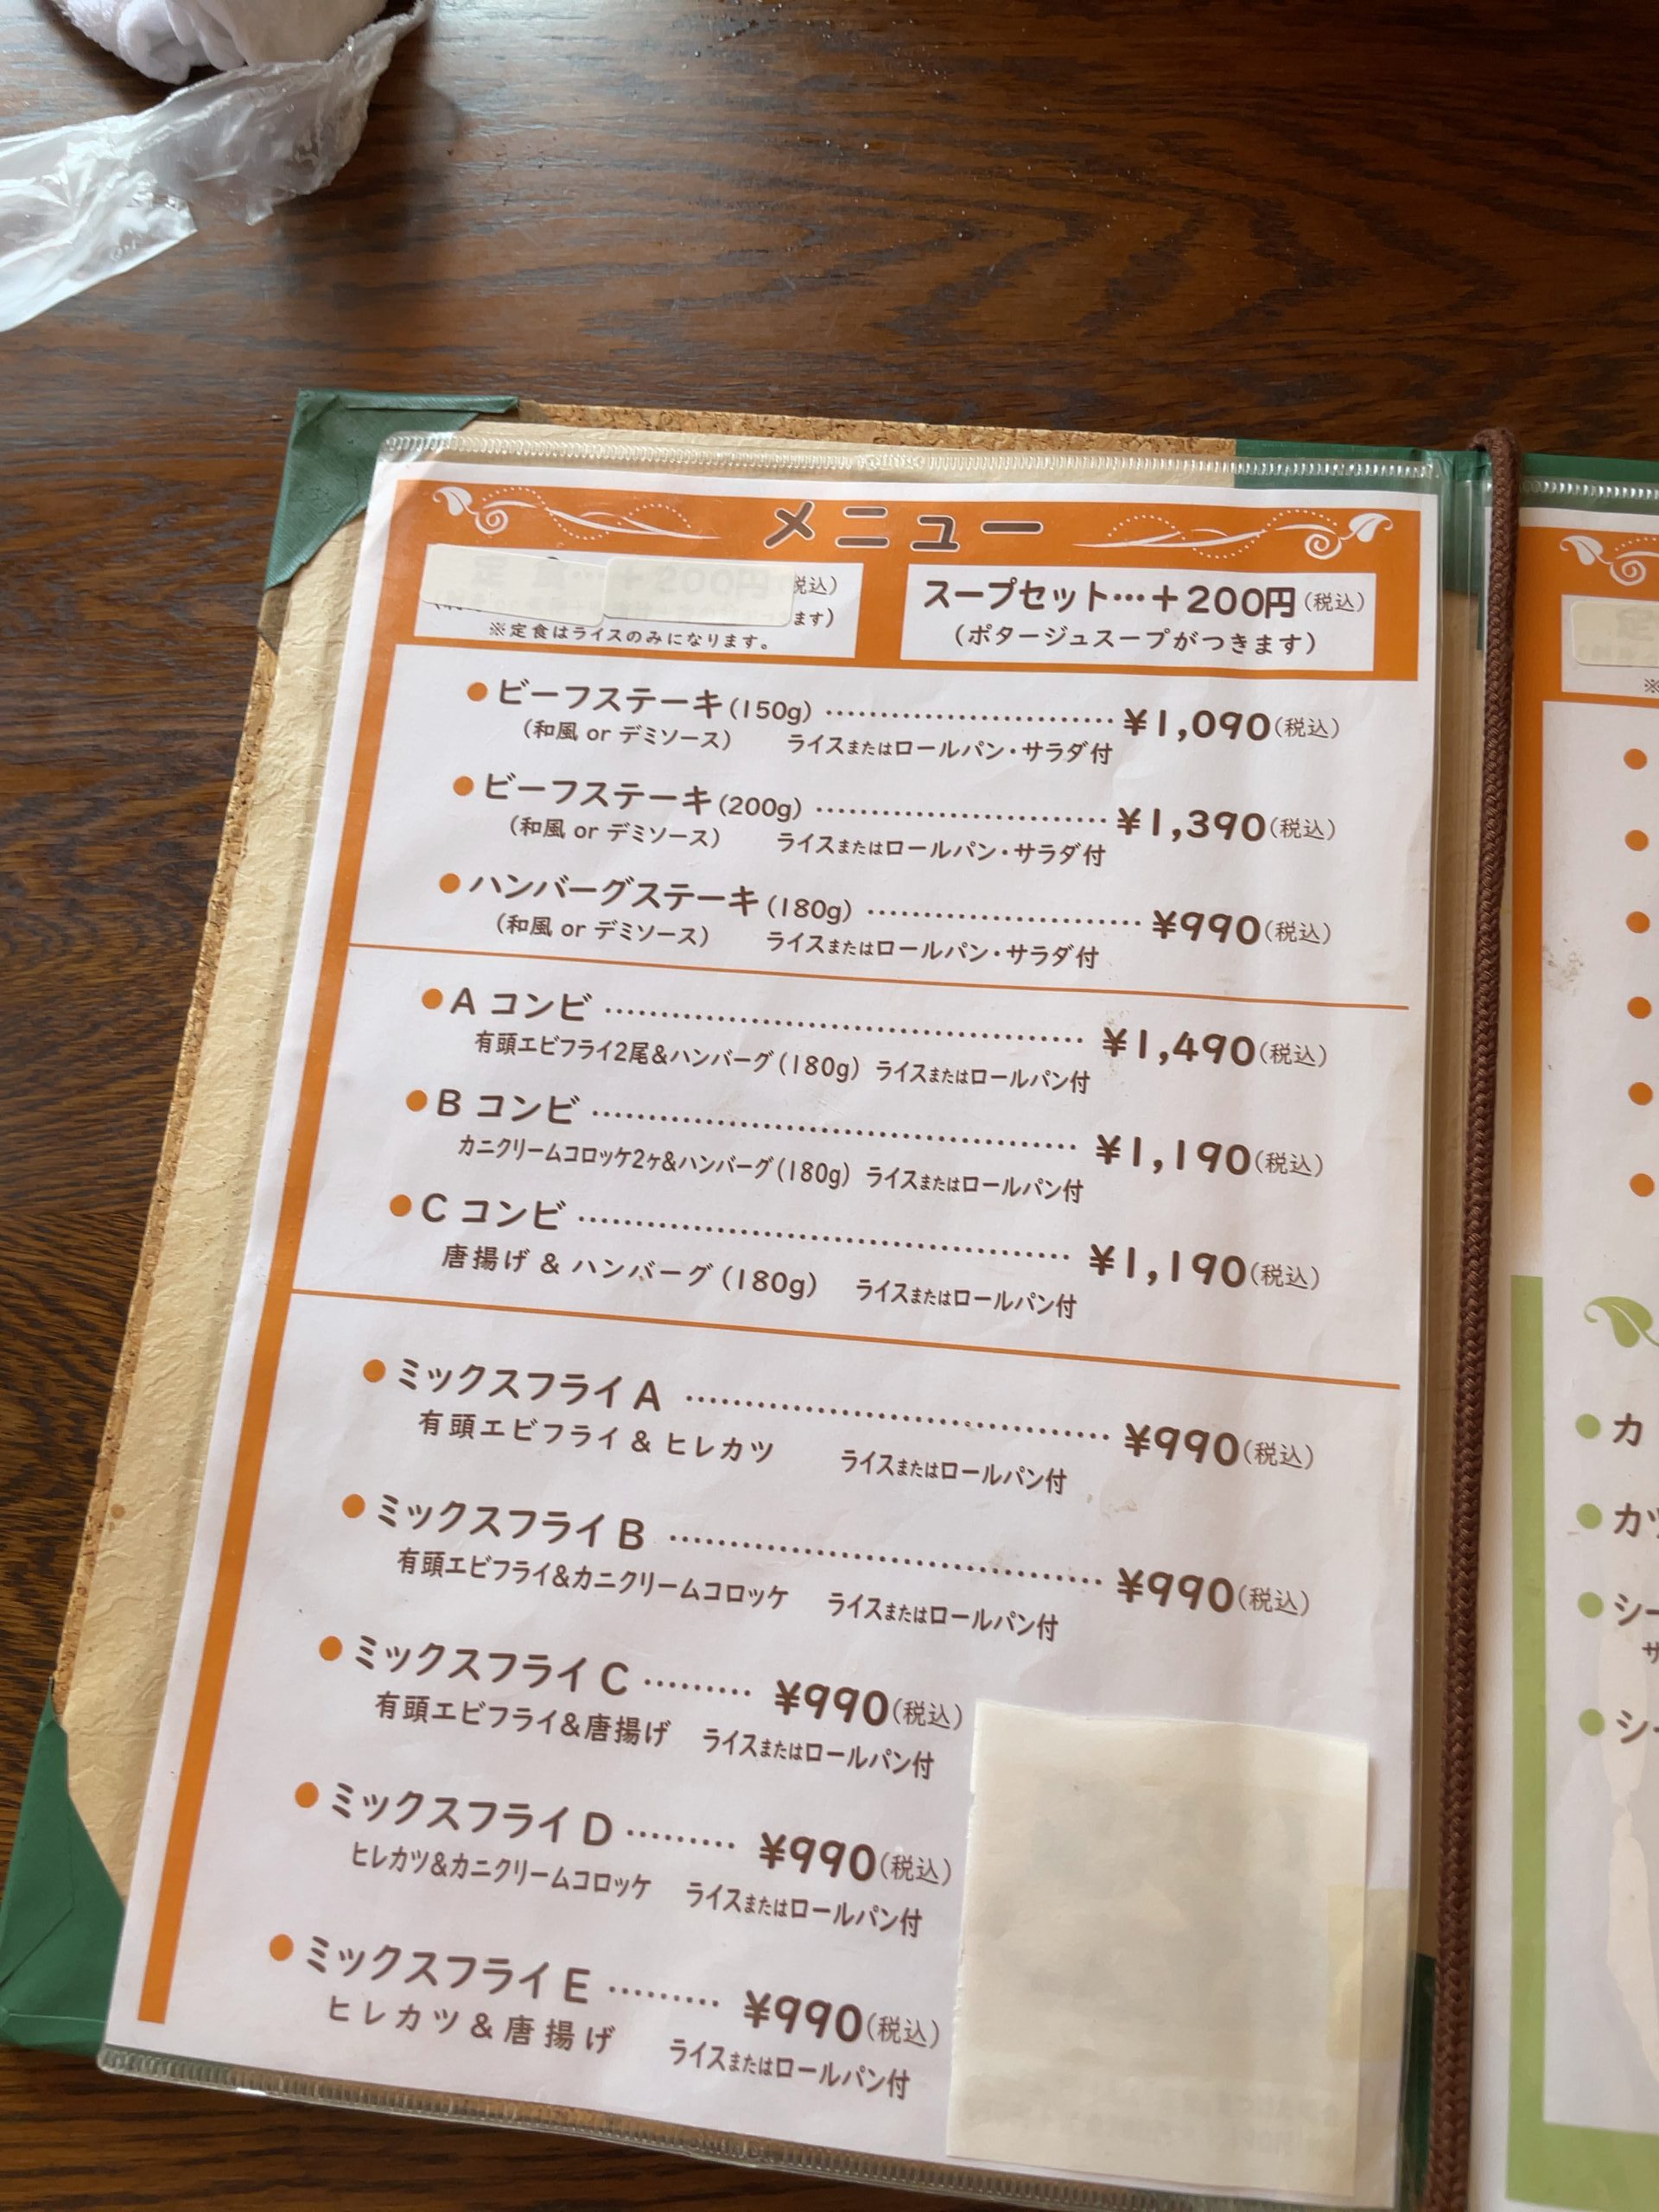 メニュー
定食…＋200円(税込)
ます)
※定食はライスのみになります。
スープセット…＋200円(税込)
(ポタージュスープがつきます)
●ビーフステーキ(150g)……………………¥1,090(税込)
(和風 or デミソース) ライスまたはロールパン・サラダ付
●ビーフステーキ(200g)……………………¥1,390(税込)
(和風 or デミソース) ライスまたはロールパン・サラダ付
●ハンバーグステーキ(180g)……………………¥990(税込)
(和風 or デミソース) ライスまたはロールパン・サラダ付
●A コンビ……………………¥1,490(税込)
有頭エビフライ2尾&ハンバーグ(180g) ライスまたはロールパン付
●B コンビ……………………¥1,190(税込)
カニクリームコロッケ2ヶ&ハンバーグ(180g) ライスまたはロールパン付
●C コンビ……………………¥1,190(税込)
唐揚げ & ハンバーグ(180g) ライスまたはロールパン付
●ミックスフライ A……………………¥990(税込)
有頭エビフライ & ヒレカツ ライスまたはロールパン付
●ミックスフライ B……………………¥990(税込)
有頭エビフライ&カニクリームコロッケ ライスまたはロールパン付
●ミックスフライ C………¥990(税込)
有頭エビフライ&唐揚げ ライスまたはロールパン付
●ミックスフライ D………¥990(税込)
ヒレカツ&カニクリームコロッケ ライスまたはロールパン付
●ミックスフライ E………¥990(税込)
ヒレカツ&唐揚げ ライスまたはロールパン付
※
●カ
●カツ
●シー
サ
●シー